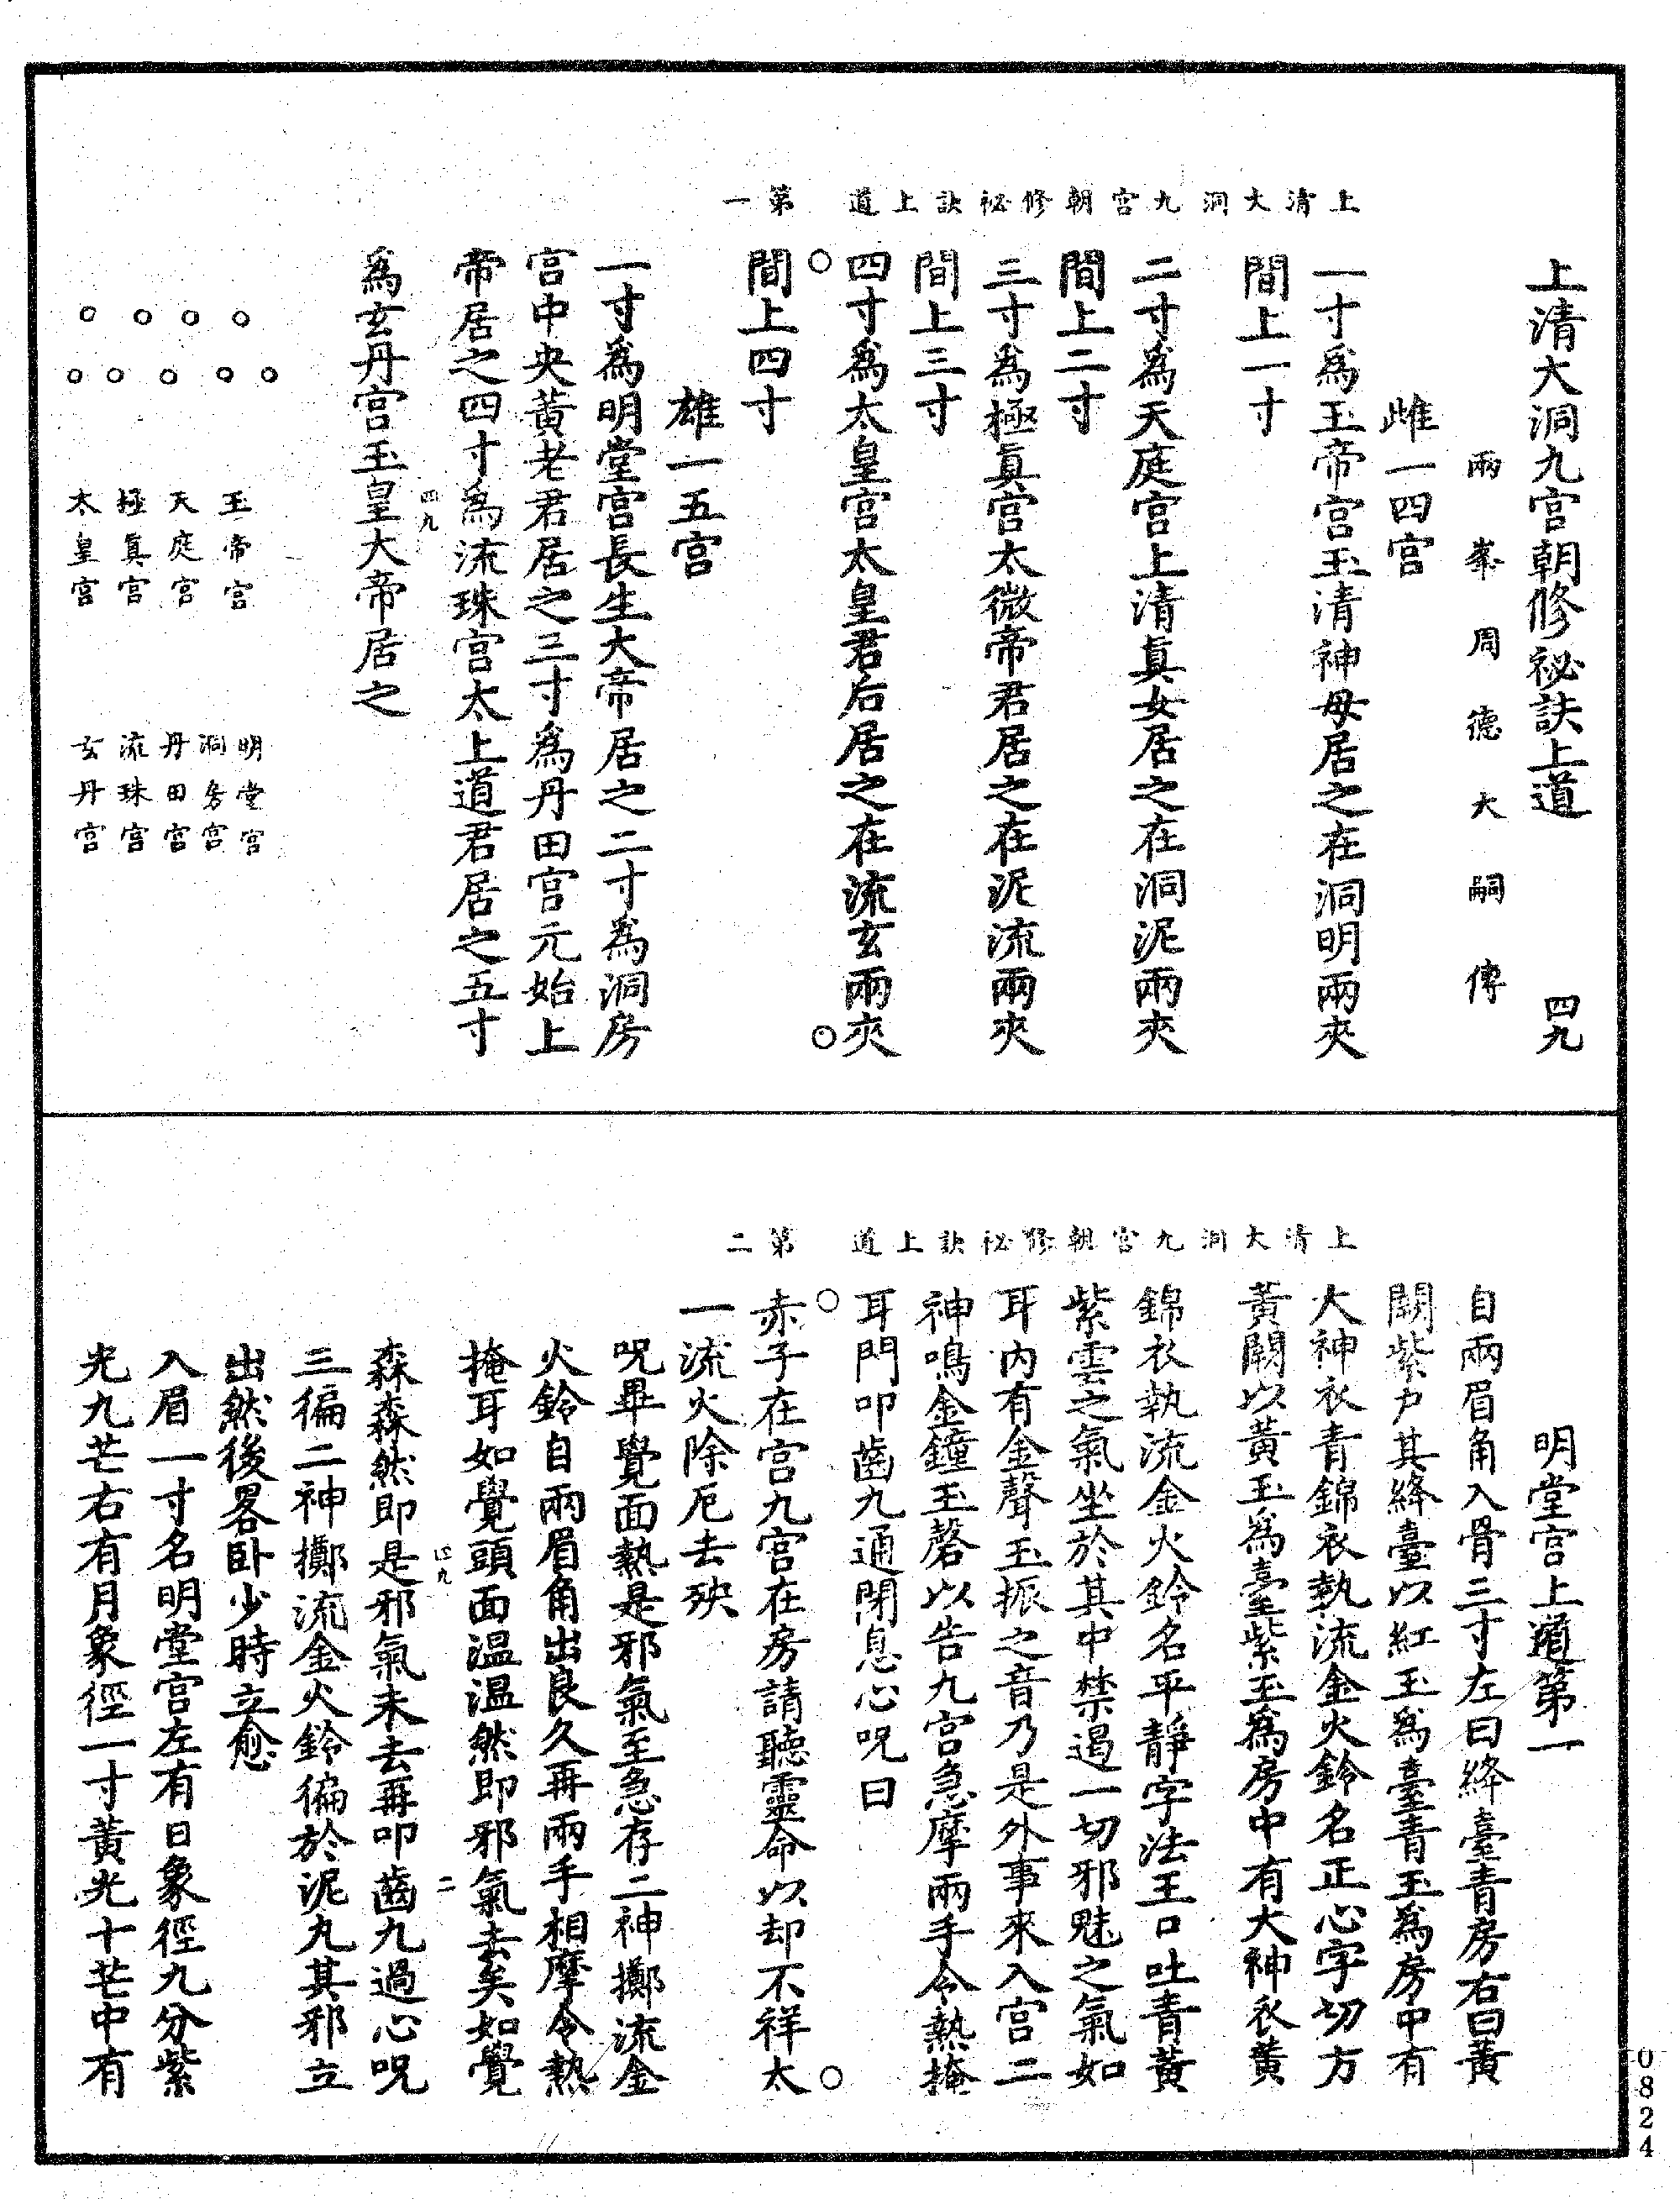 上清大洞九宫朝修祕訣上道 四九
兩峯周德大嗣傳
雌一四宫
一寸爲玉帝宫玉清神母居之在洞明兩夾
間上一寸
二寸爲天庭宫上清眞女居之在洞泥兩夾
間上二寸
三寸爲極眞宫太微帝君居之在泥流兩夾
間上三寸
四寸爲太皇宫太皇君后居之在流玄兩夾
間上四寸
雄一五宫
一寸爲明堂宫長生大帝居之二寸爲洞房
宫中央黃老君居之三寸爲丹田宫元始上
帝居之四寸爲流珠宫太上道君居之五寸
四九
爲玄丹宫玉皇大帝居之
玉帝宫
天庭宫
極眞宫
太皇宫
明堂宫
洞房宫
丹田宫
流珠宫
玄丹宫
上清大洞九宫朝修祕訣上道 第一
上清大洞九宫朝修祕訣上道 第二
明堂宫上道第一
自兩眉角入骨三寸左曰絳臺青房右曰黃
闕紫戶其絳臺以紅玉爲臺青玉爲房中有
大神衣青錦衣執流金火鈴名正心字切方
黃闕以黃玉爲臺紫玉爲房中有大神衣黃
錦衣執流金火鈴名平靜字法王口吐青黃
紫雲之氣坐於其中禁遏一切邪魅之氣如
耳內有金聲玉振之音乃是外事來入宫二
神鳴金鐘玉磬以告九宫急摩兩手令熱掩
耳門叩齒九通閉息心呪曰
赤子在宫九宫在房請聽靈命以却不祥太
一流火除厄去殃
呪畢覺面熱是邪氣至急存二神擲流金
火鈴自兩眉角出良久再兩手相摩令熱
掩耳如覺頭面温温然即邪氣去矣如覺
四九 二
森森然即是邪氣未去再叩齒九過心呪
三徧二神擲流金火鈴徧於泥丸其邪立
出然後畧卧少時立愈
入眉一寸名明堂宫左有日象徑九分紫
光九芒右有月象徑一寸黃光十芒中有
0824